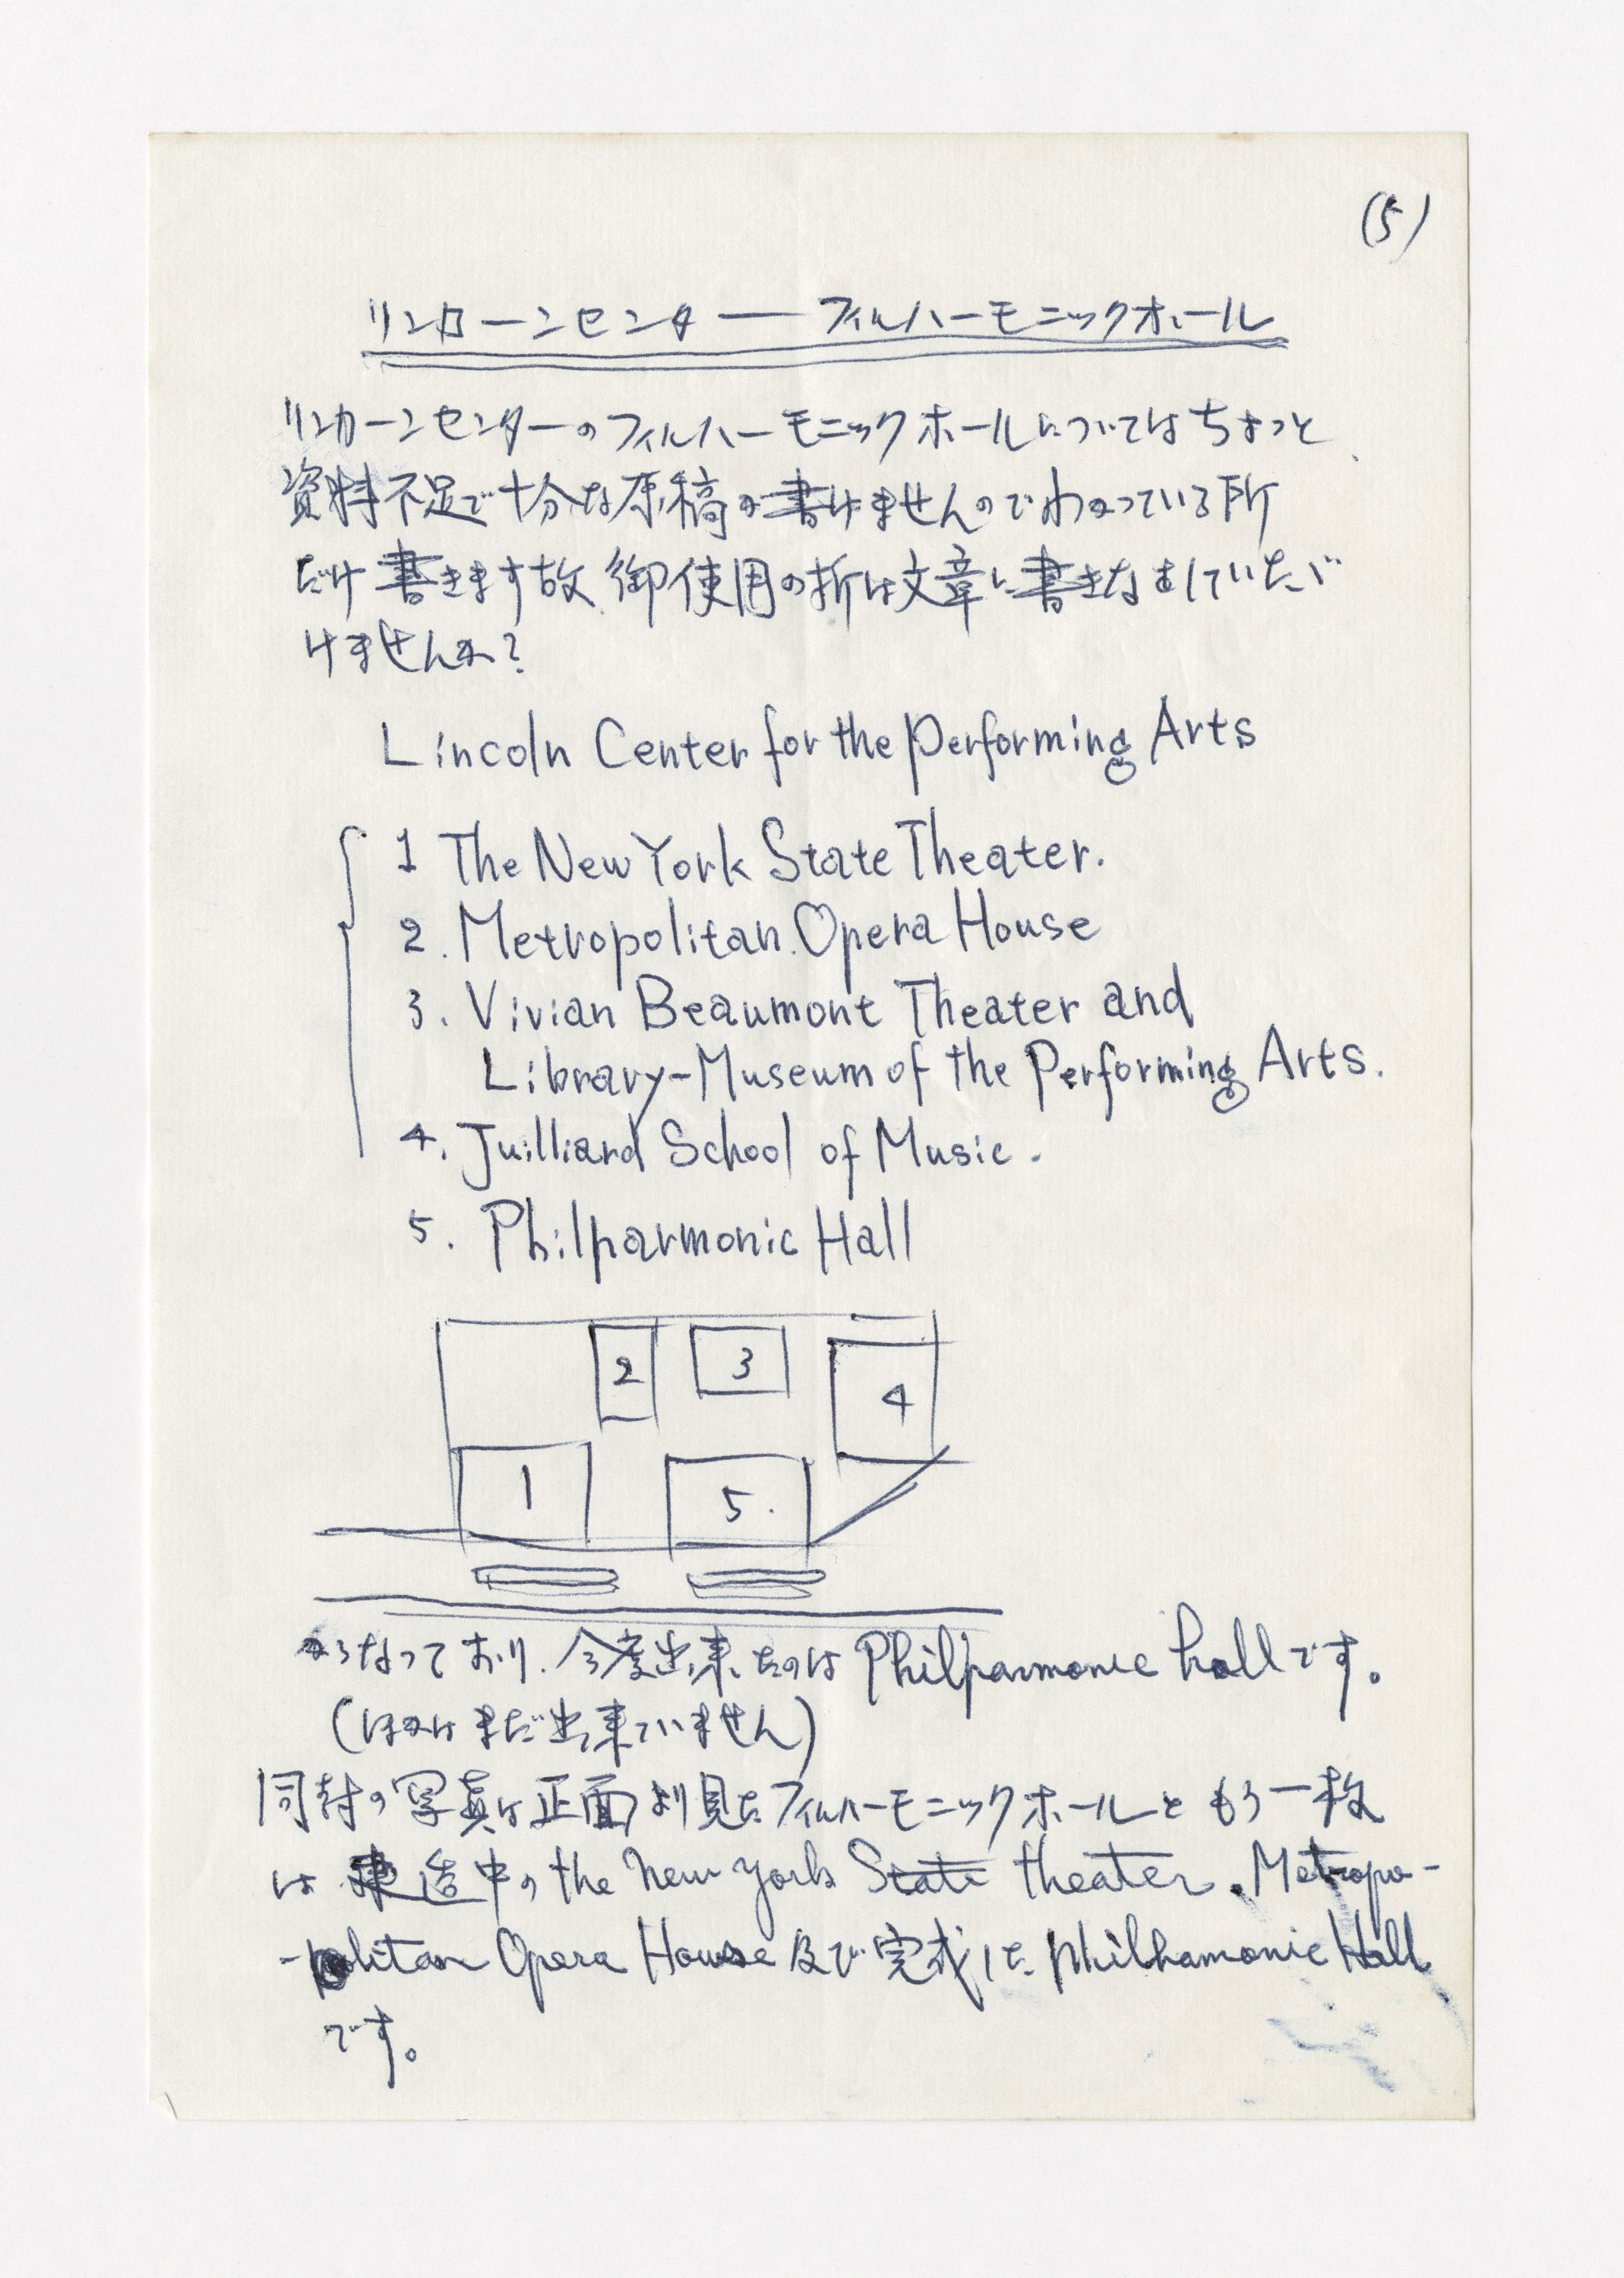 (5)
リンカーンセンター フィルハーモニックホール
リンカーンセンターのフィルハーモニックホールについてはちょっと
資料不足で十分な原稿が書けませんのでわかっている所
だけ書きます故、御使用の折は文章に書きなおしていただ
けませんか?
Lincoln Center for the Performing Arts
1 The New York State Theater.
2. Metropolitan Opera House
3. Vivian Beaumont Theater and
Library-Museum of the Performing Arts.
4. Juilliard School of Music.
5. Philparmonic Hall
2 3 4
1 5.
かうなっており、今度出来たのは Philparmonic hall です。
(ほかはまだ出来ていません)
同封の写真は正面より見たフィルハーモニックホールともう一枚
は建造中の the New York State theater. Metropo-
-politan Opera House 及び完成した Philhamonic Hall
です。